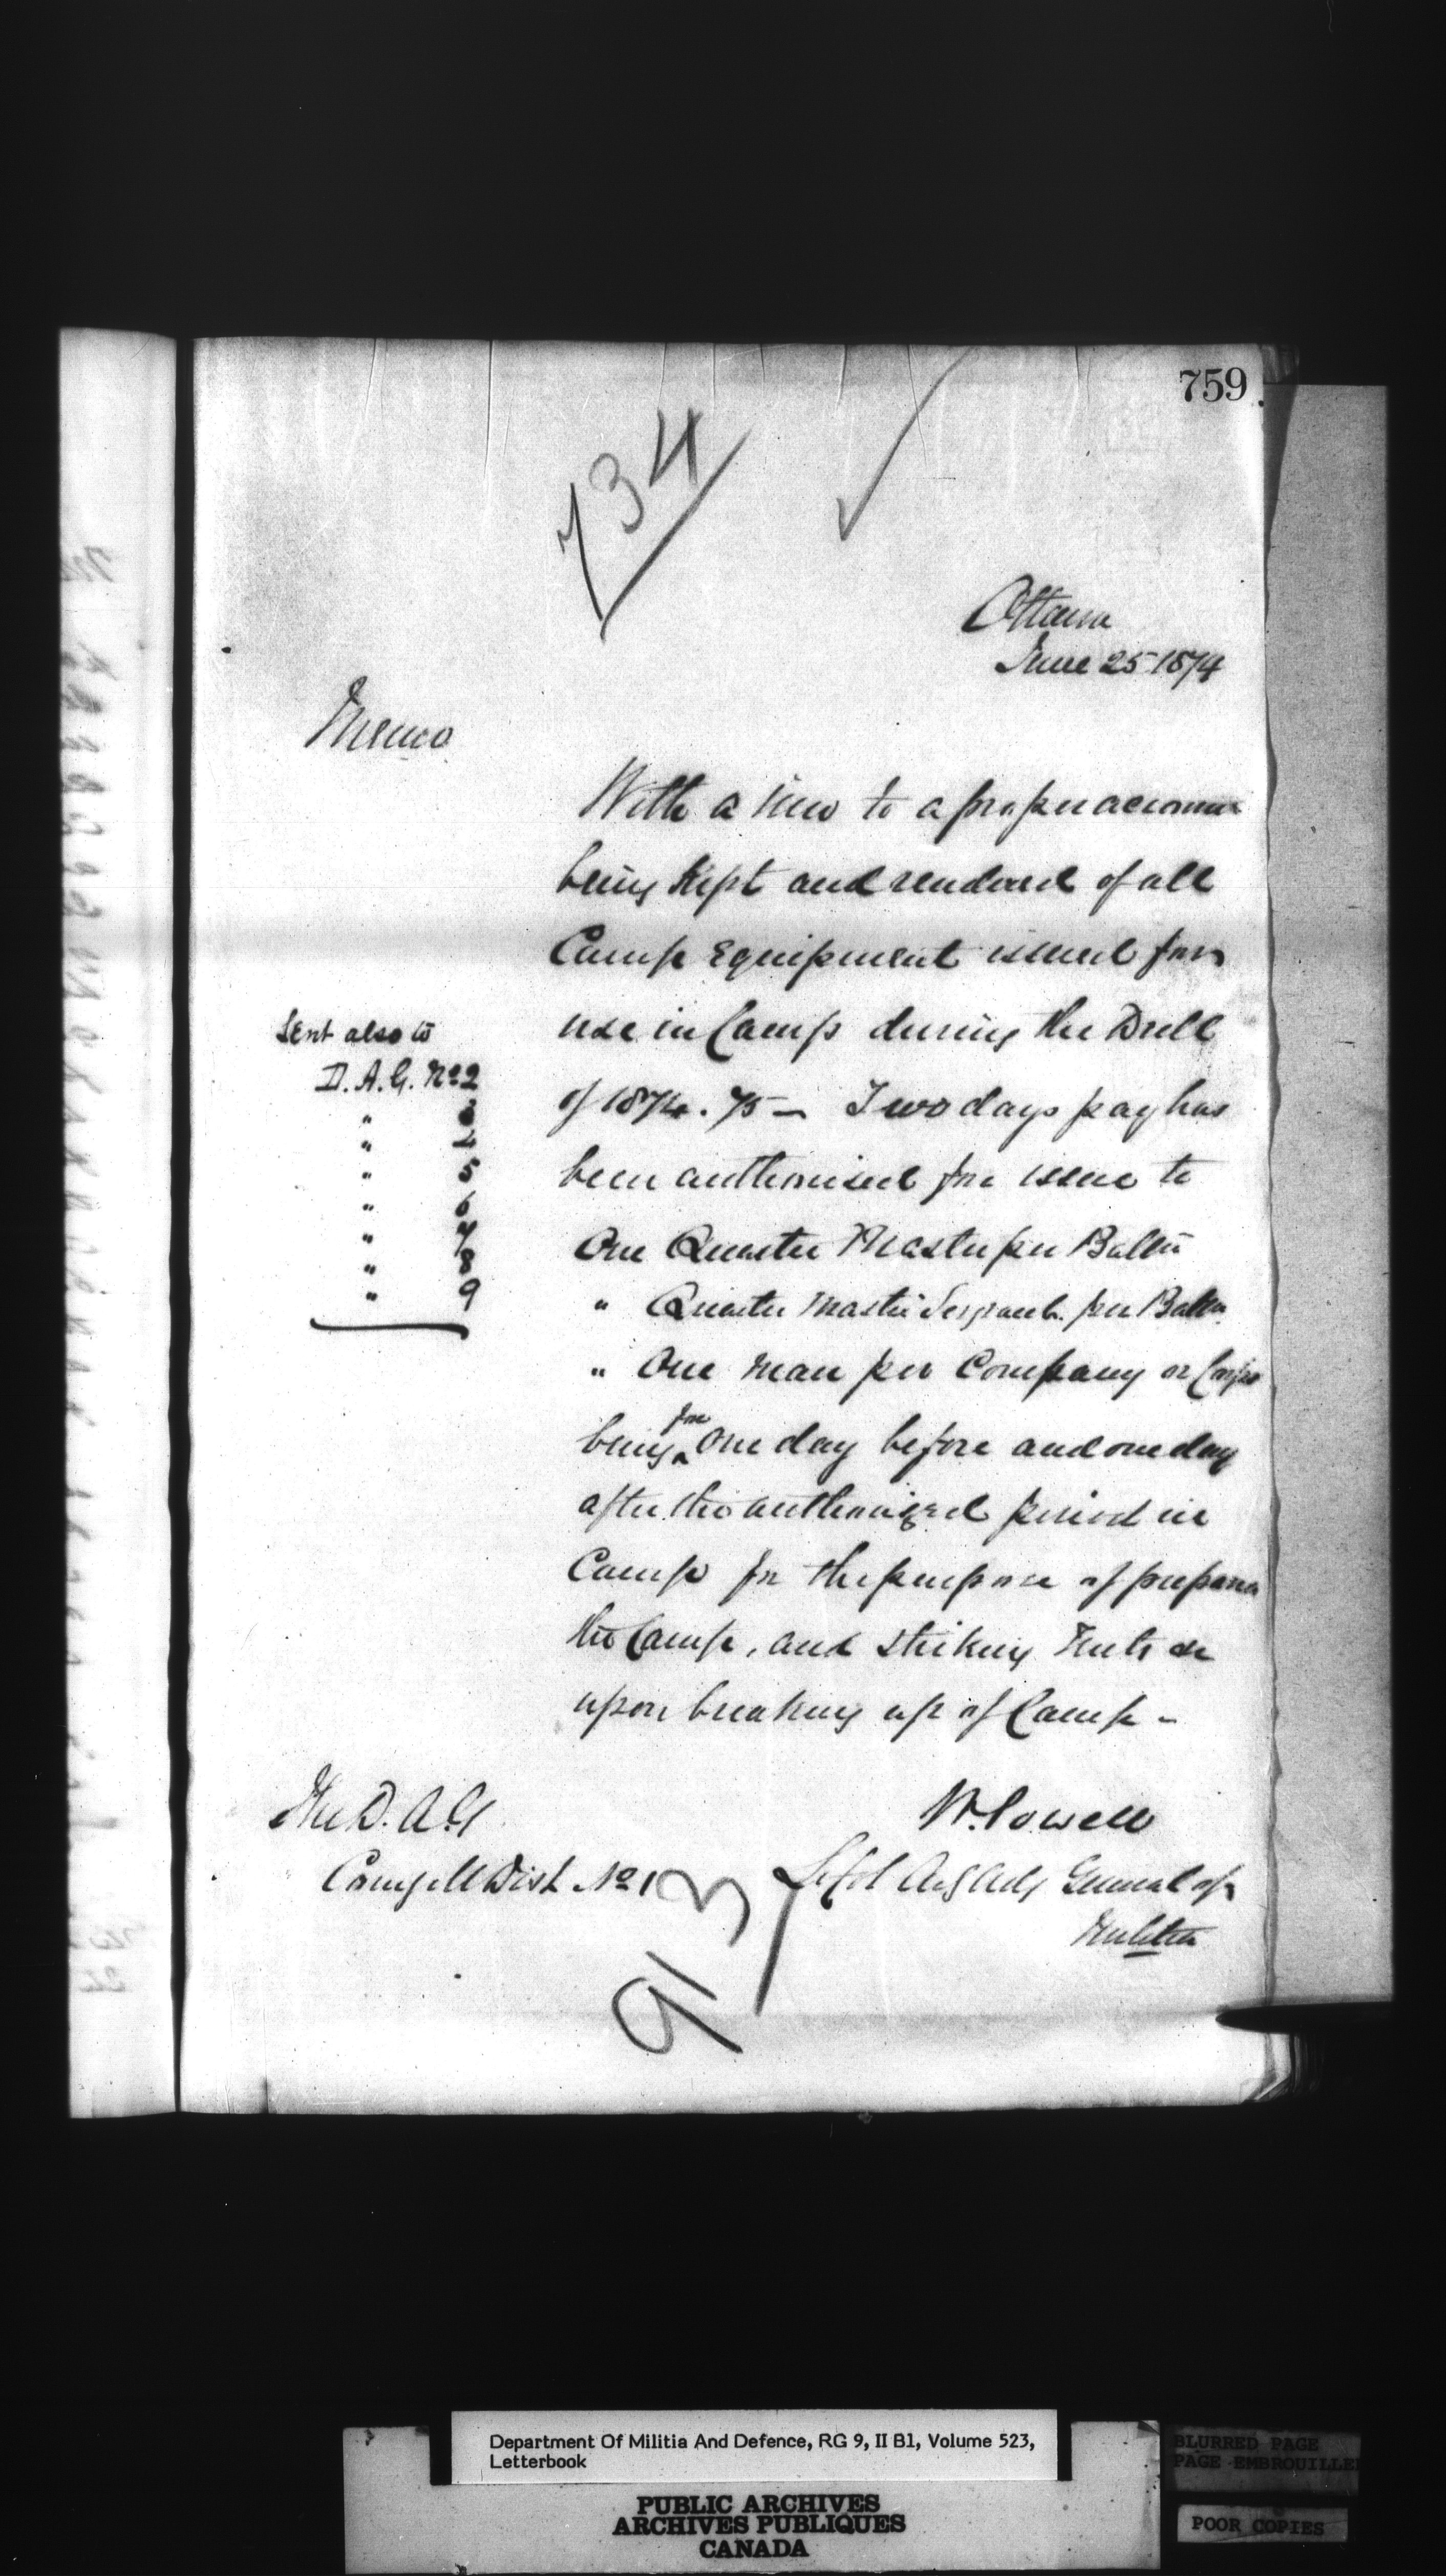 759
734
Ottawa
June 25 1874
Memo
With a view to a proper account
being kept and rendered of all
Camp Equipment issued for
use in Camp during the Drill
of 1874.75 — Two days pay has
been authorised for issue to
One Quarter Master per Battn
" Quarter Master Sergeant per Battn
" One man per Company or Corps
being for One day before and one day
after the authorized period in
Camp for the purpose of preparing
the Camp, and striking Tents &c
upon breaking up of Camp -
Sent also to
D. A. G. No 2
" 3
" 4
" 5
" 6
" 7
" 8
" 9
The D. A. G
Comg M Dist No 1
W. Powell
Lt Col Actg Adjt General of
Militia
913
Department Of Militia And Defence, RG 9, II B1, Volume 523,
Letterbook
PUBLIC ARCHIVES
ARCHIVES PUBLIQUES
CANADA
BLURRED PAGE
PAGE EMBROUILLEE
POOR COPIES